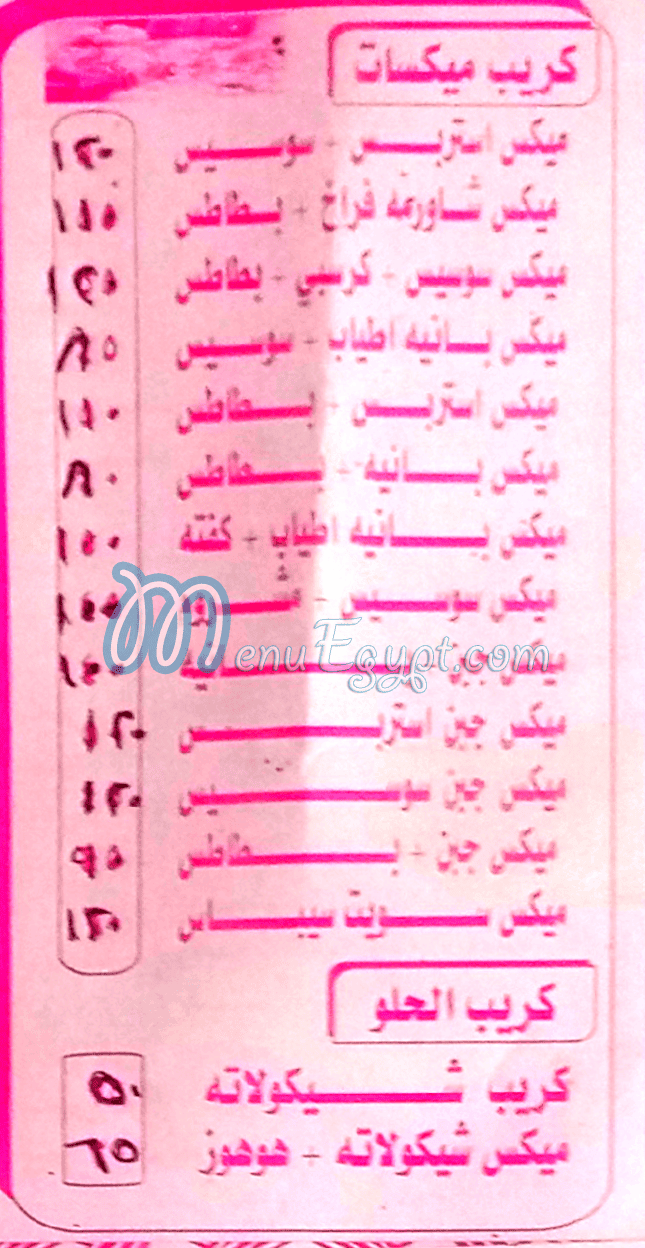 كريب ميكسات
ميكس استربس - سوسيس ١٢٠
ميكس شاورمه فراخ - بطاطس ١١٥
ميكس سوسيس - كرسبي - بطاطس ١٢٥
ميكس بانيه اطياب - سوسيس ٨٥
ميكس استربس - بطاطس ١١٠
ميكس بانيه - بطاطس ٨٠
ميكس بانيه اطياب - كفته
ميكس سوسيس -
ميكس جبن
MenuEgypt.com
ميكس جبن استربس ١٢٠
ميكس جبن سوسيس ١٢٠
ميكس جبن - بطاطس ٩٥
ميكس سويت سيباس ١٢٠
كريب الحلو
كريب شيكولاته ٥٠
ميكس شيكولاته - هوهوز ٦٥